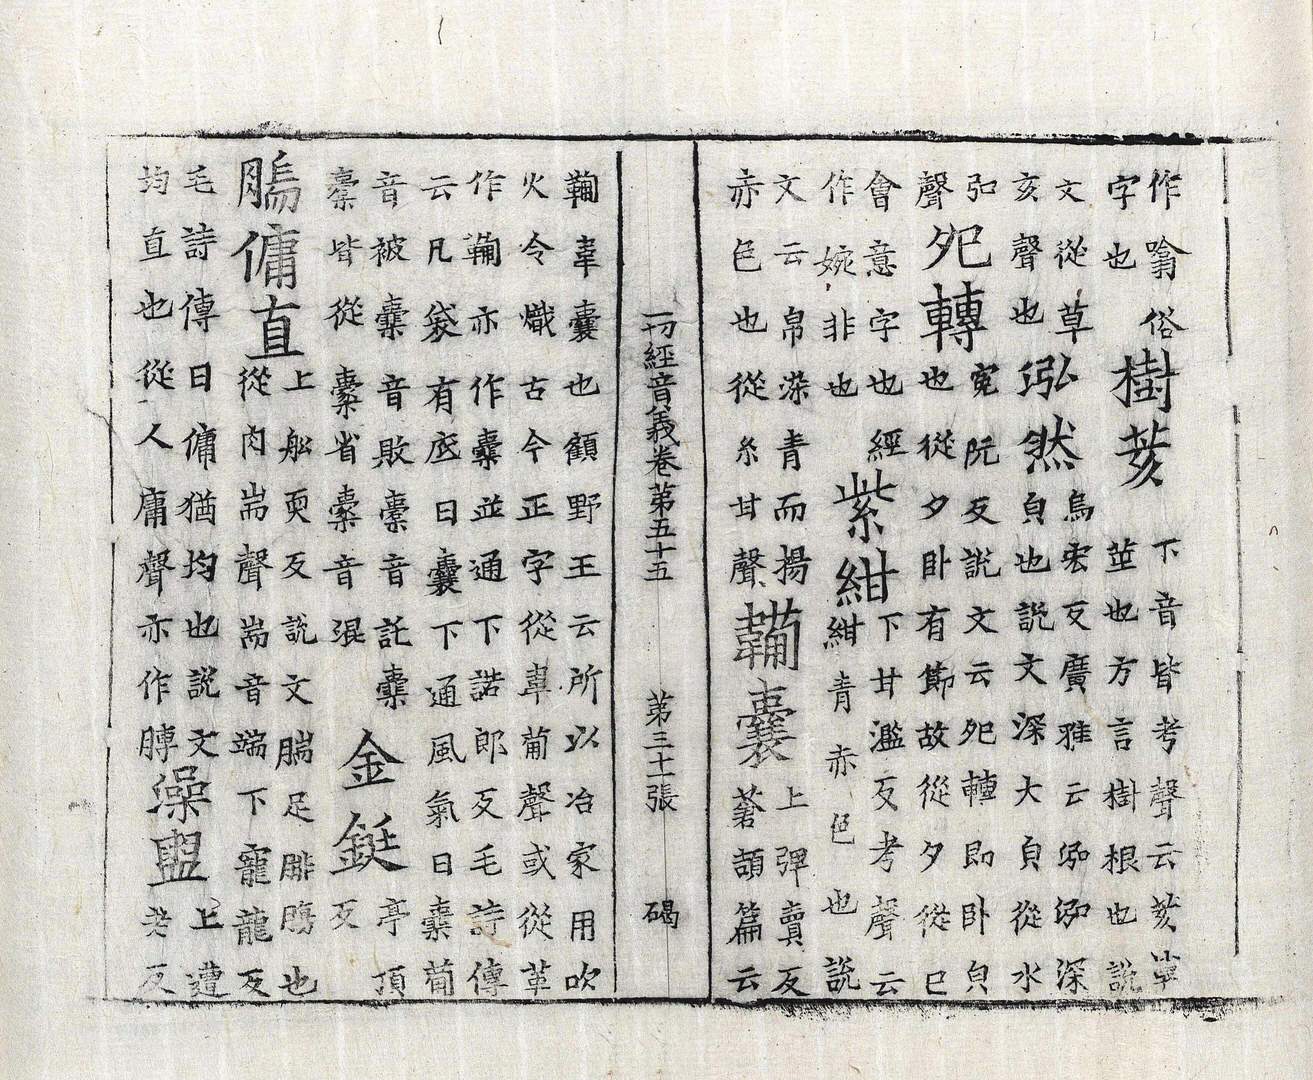 作噏俗
字也
樹荄
下音皆考聲云荄草
莖也方言樹根也説
文從草
亥聲也
泓然
烏宏反廣雅云泓泓深
皃也説文深大皃從水
弘
聲
夗轉
寃阮反説文云夗轉即卧皃
也從夕卧有節故從夕從㔾
會意字也經
作婉非也
紫紺
下甘濫反考聲云
紺青赤色也説
文云帛深青而揚
赤色也從糸甘聲
鞴囊
上彈賣反
蒼頡篇云
一切經音義卷第五十五 第三十張 碣
鞴韋囊也顧野王云所以冶家用吹
火令熾古今正字從韋葡聲或從革
作鞴亦作橐並通下諾郎反毛詩傳
云凡袋有底曰囊下通風氣曰橐葡
音被橐音敗橐音託橐
橐皆從橐省橐音混
金鋌
亭頂
反
腨傭直
上船耎反説文腨足腓腸也
從肉耑聲耑音端下寵龍反
毛詩傳曰傭猶均也説文
均直也從人庸聲亦作膊
澡盥
上遭
老反